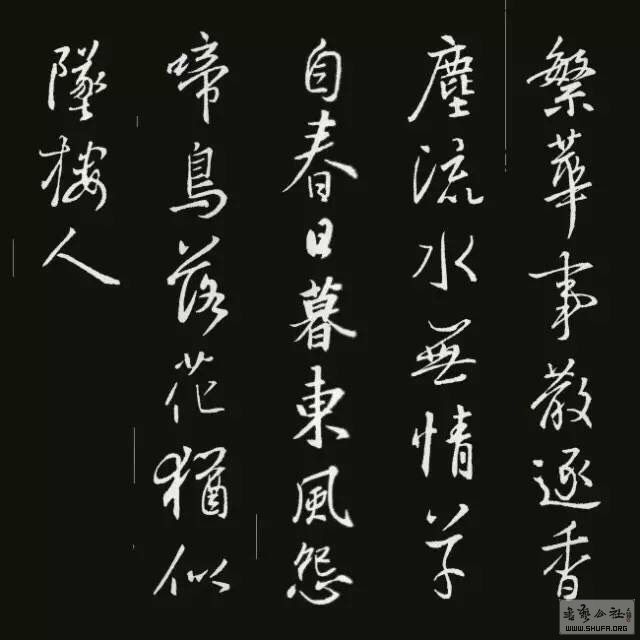 繁華事散逐香
塵流水無情草
自春日暮東風怨
啼鳥落花猶似
墜樓人
WWW.SHUFA.ORG